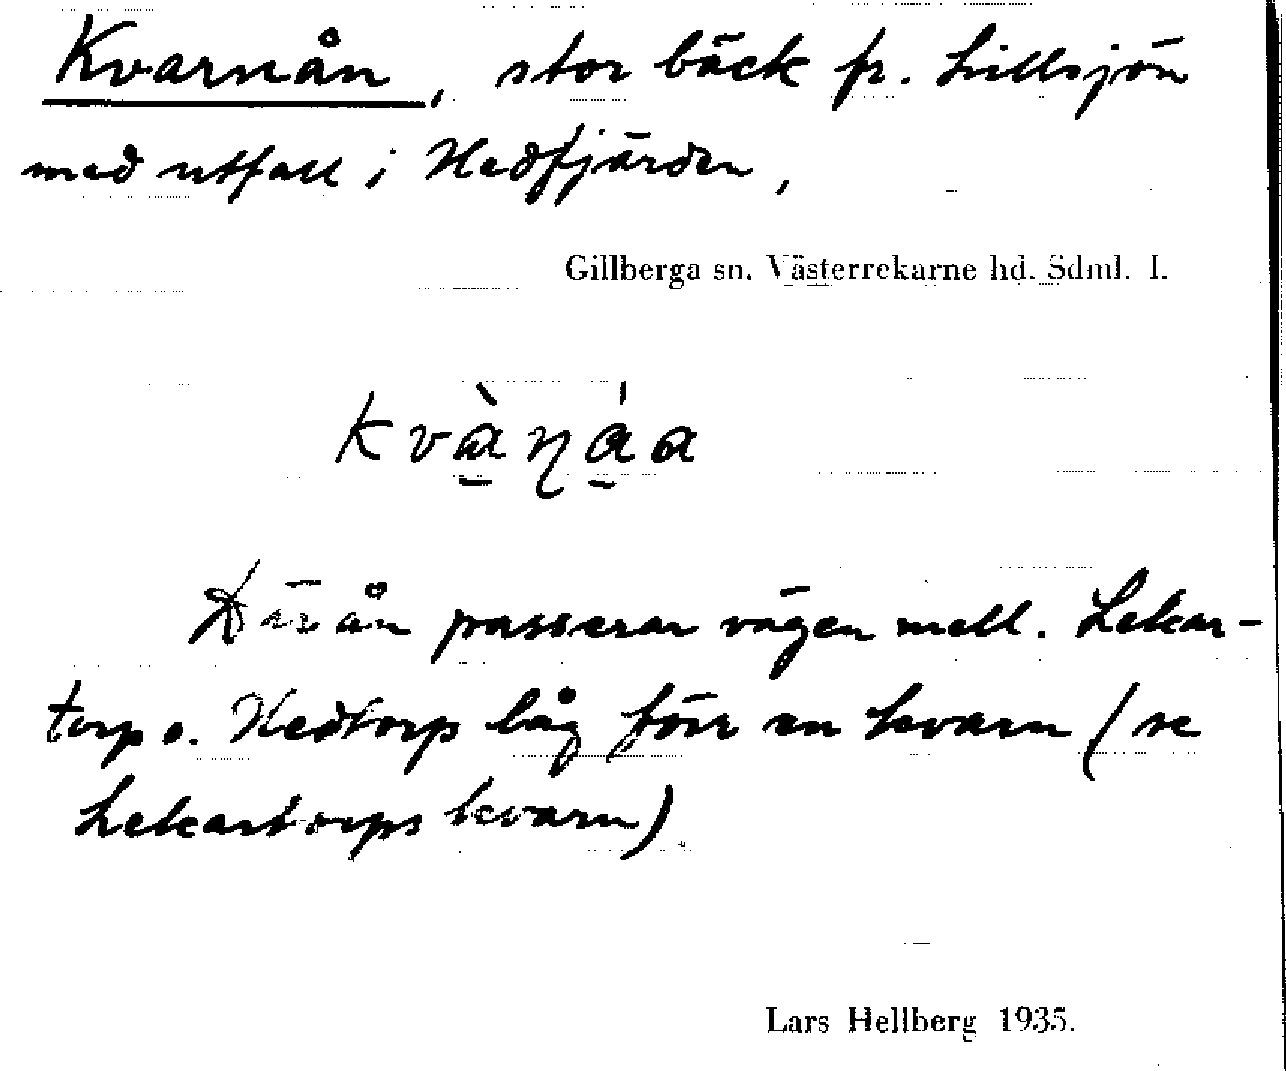 Kvarnån, stor bäck fr. Lillsjön
med utfall i Hedfjärden,
Gillberga sn. Västerrekarne hd. Sdml. I.
kvàṉáa
Där ån passerar vägen mell. Lekar-
torp o. Hedtorp låg förr en kvarn (se
Lekartorps kvarn)
Lars Hellberg 1935.